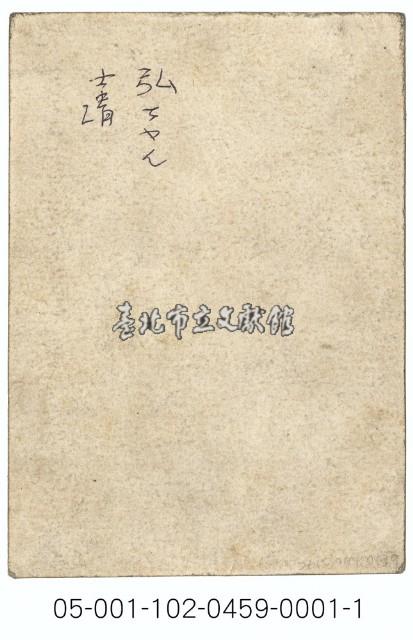 弘ちゃん
士靖
臺北市立文獻館
05-001-102-0459-0001-1